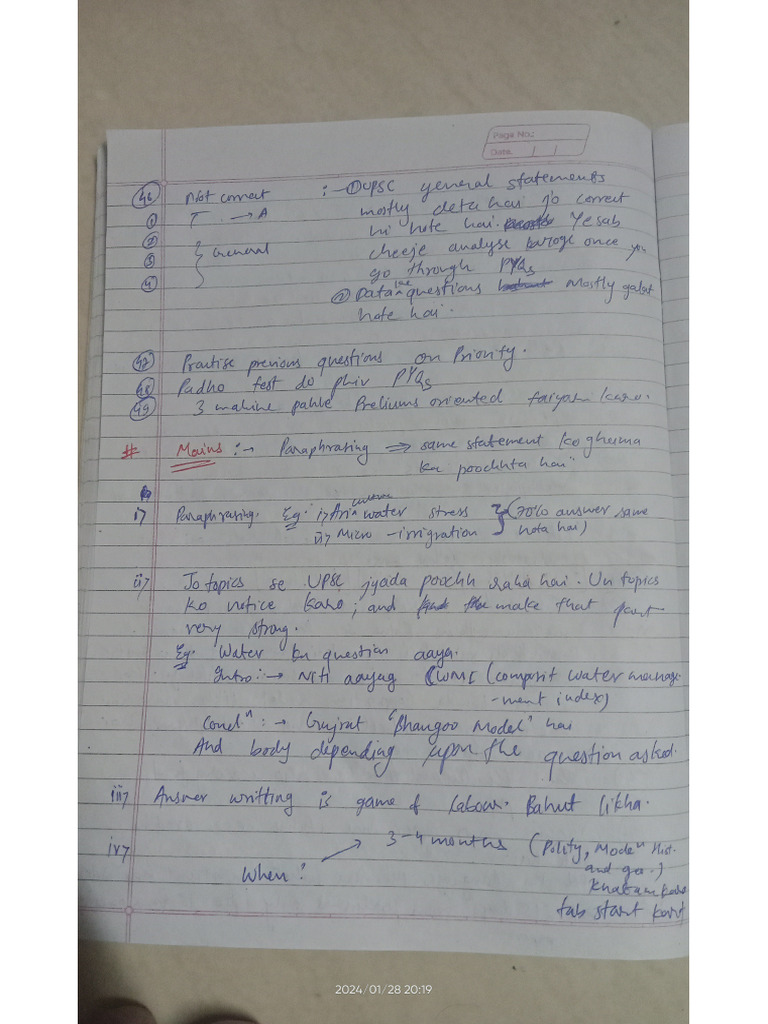 Page No.:
Date
46 Not correct :- ① UPSC general statements
① T → A mostly deta hai jo correct
② hi hote hai. Ye sab
③ General cheeje analyse karoge once you
④ go through PYQs
② Data like questions mostly galat
hote hai.
47 Practise previous questions on Priority.
48 Padho test do phir PYQs
49 3 mahine pahle Preliums oriented taiyari karo.
# Mains :→ Paraphrasing ⇒ same statement ko ghuma
ka poochhta hai"
i> Paraphrasing. Eg: i> water stress } (70% answer same
ii> Micro-irrigration hota hai)
ii> Jo topics se UPSC jyada poochh raha hai. Un topics
ko notice karo; and make that part
very strong.
Eg. Water ka question aaya.
Intro:→ Niti aayag CWMI (comprsit water manage
-ment index)
Concln :→ Gujrat "Bhangoo Model" hai
And body depending upon the question asked.
iii> Answer writting is game of labour. Bahut likha.
iv> 3-4 months (Polity, Moden Hist.
When? and geo.)
Khatam karo
tab start kart
2024/01/28 20:19